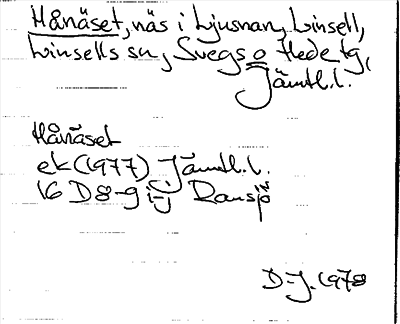 Hånäset, näs i Ljusnan, Linsell,
Linsells sn, Svegs o Hede tg,
Jämtl.l.
Hånäset
ek (1977) Jämtl.l.
16 D 8-9 i-j Ransjö
D-J. 1978